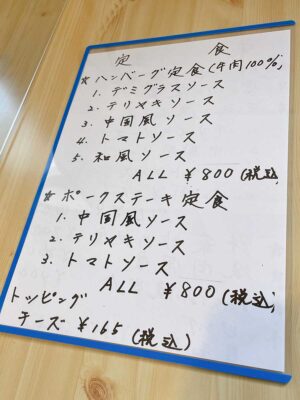 定 食
☆ハンバーグ定食(牛肉100%)
1. デミグラスソース
2. テリヤキソース
3. 中国風ソース
4. トマトソース
5. 和風ソース
ALL ¥800(税込)
☆ポークステーキ定食
1. 中国風ソース
2. テリヤキソース
3. トマトソース
ALL ¥800(税込)
トッピング
チーズ ¥165(税込)